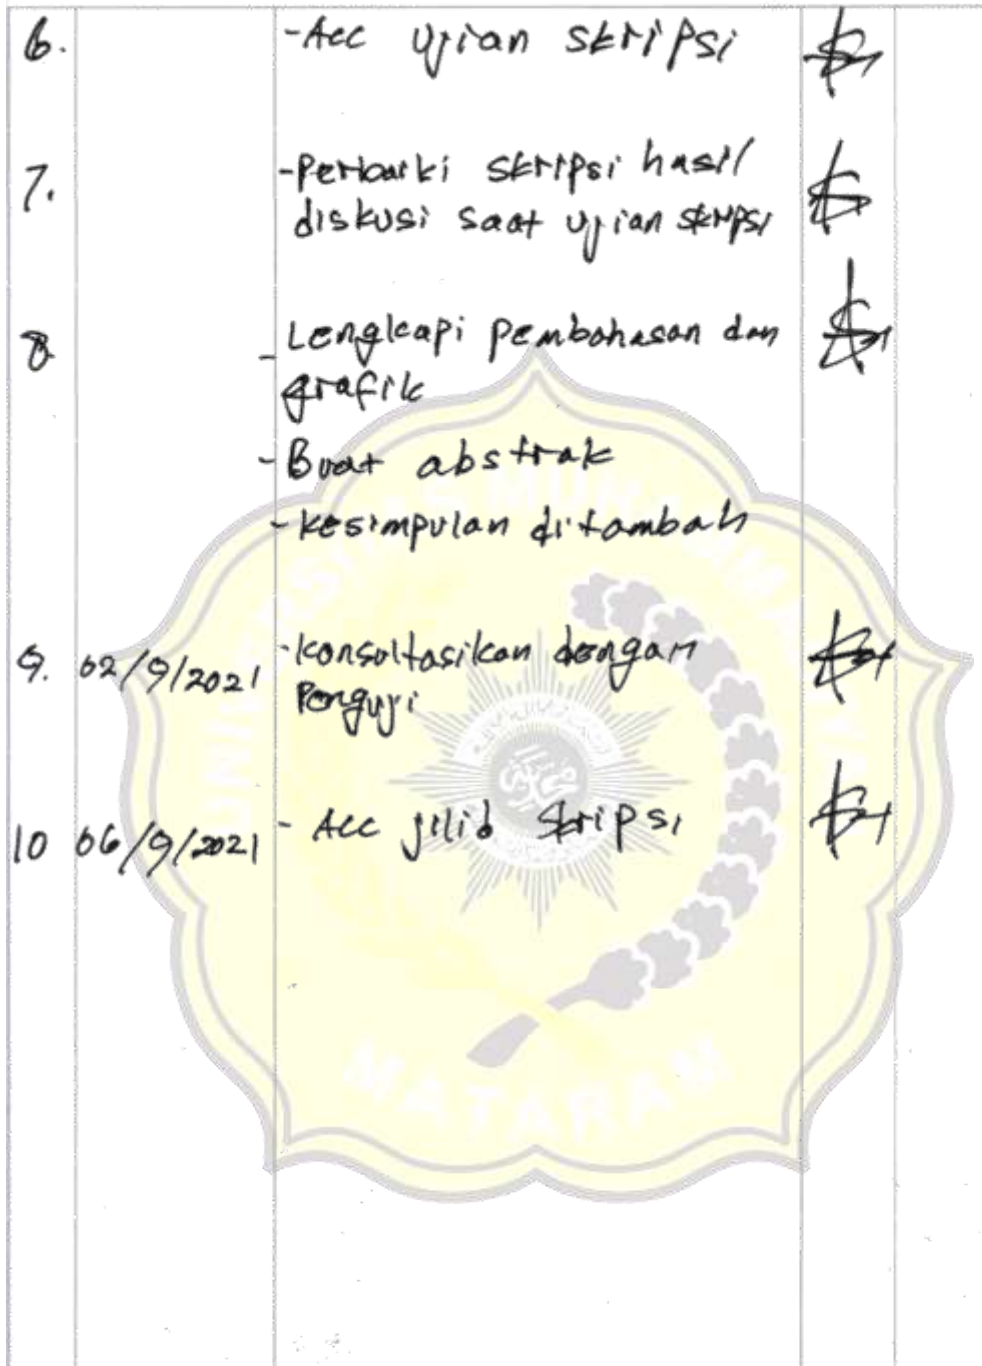 6. -Acc ujian skripsi
7. -Perbaiki skripsi hasil
diskusi saat ujian skripsi
8 - Lengkapi pembahasan dan
grafik
- Buat abstrak
- kesimpulan ditambah
9. 02/9/2021 - konsultasikan dengan
Penguji
10 06/9/2021 - Acc jilid skripsi
UNIVERSITAS MUHAMMADIYAH
MATARAM